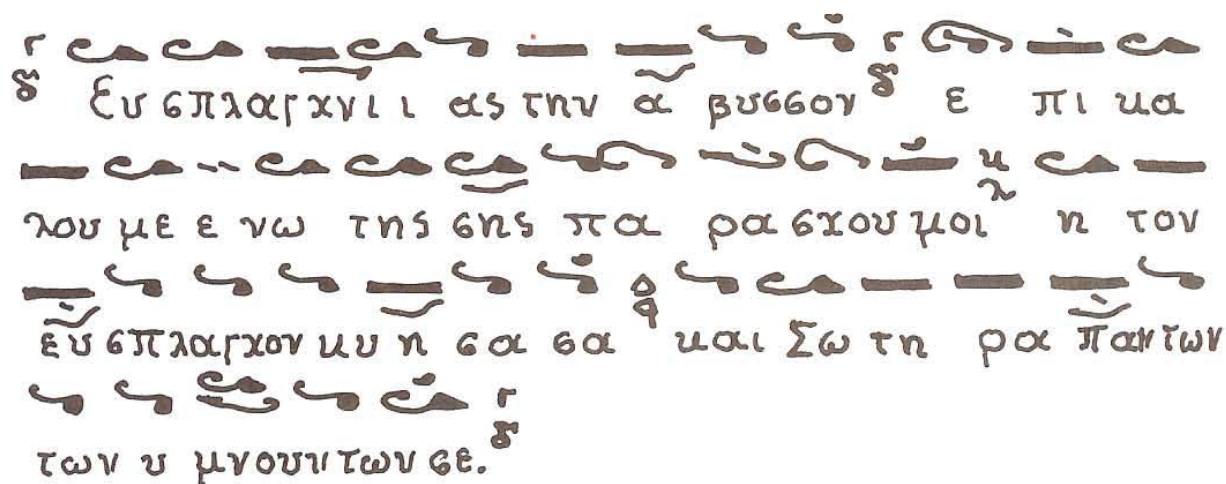 Ευ σπλαγχνι ι ας την α βυσσον ε πι κα
λου με ε νω της σης πα ρα σχου μοι η τον
ευ σπλαγχον κυ η σα σα και Σω τη ρα παντων
των υ μνουν των σε.